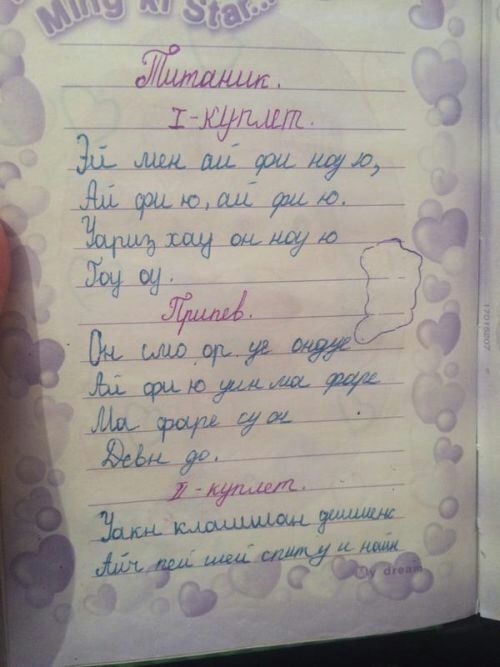 Ming xi Star...
Титаник.
I-куплет.
Эй мен ай фи ноу ю,
Ай фи ю, ай фи ю.
Уариз хау он ноу ю
Гоу оу.
Припев.
Он смо ор уе ондуе
Ай фи ю уин ма фаре
Ма фаре су он
Девн до.
II-куплет.
Уакн клашшан дешшенс
Айч пей шей спит у и найн
My dream
170116207